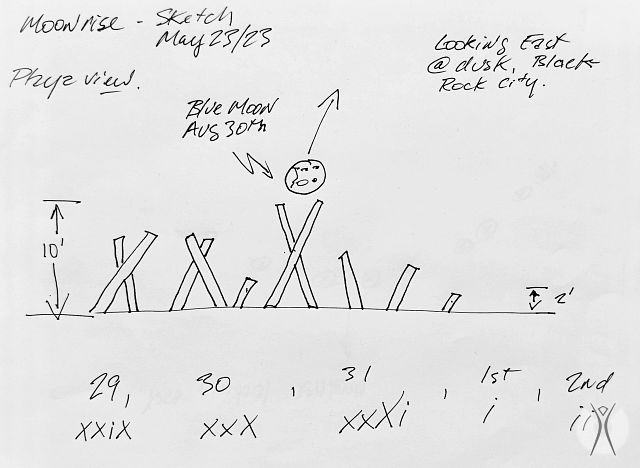 Moonrise - Sketch
May 23/23
Playa view.
Looking East
@ dusk, Black
Rock City.
Blue Moon
Aug 30th
10'
2'
29, 30 , 31 , 1st , 2nd
xxix xxx xxxi i ii